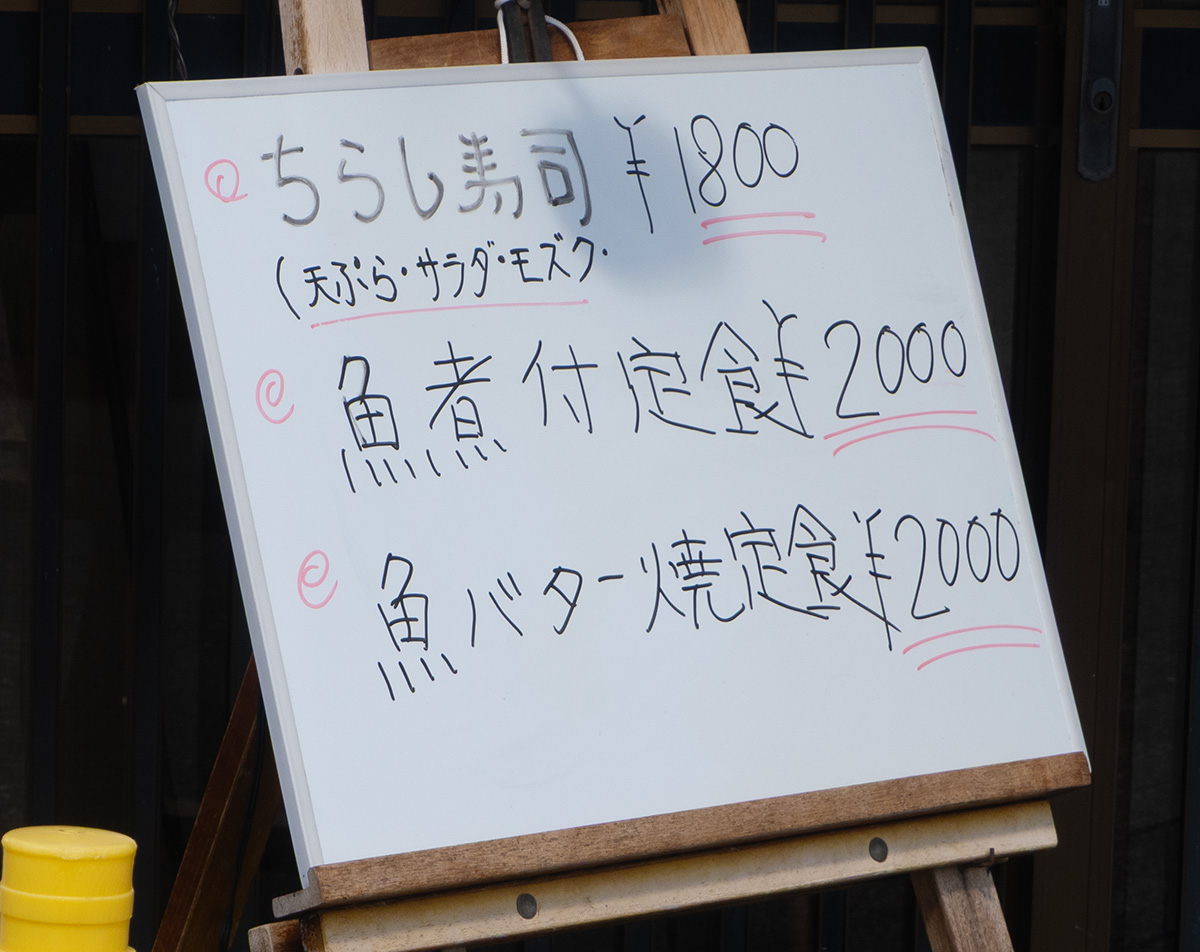 ちらし寿司 ¥1800
(天ぷら・サラダ・モズク・
魚煮付定食¥2000
魚バター焼定食¥2000